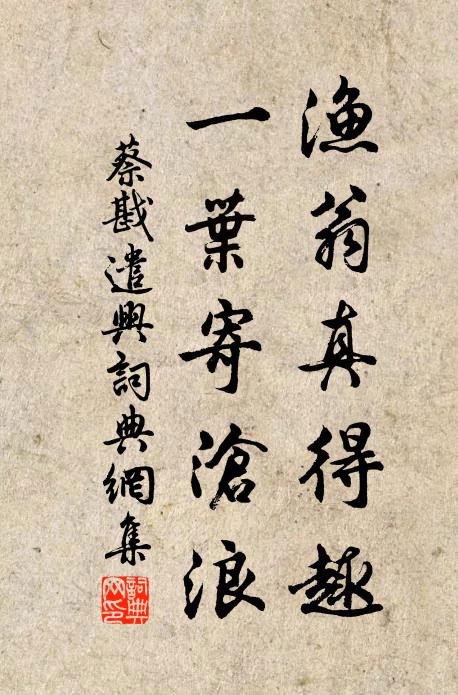 漁翁真得趣
一葉寄滄浪
蔡戡遣興詞典網集
詞典
网印